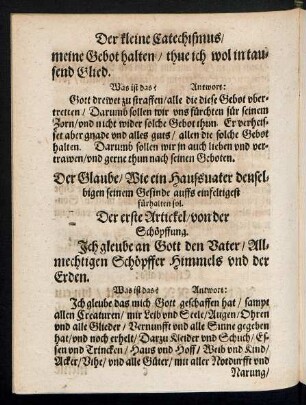 Der kleine Catechismus/
meine Gebot halten/ thue ich wol in tau-
send Glied.
Was ist das? Antwort:
Gott drewet zu straffen/alle die diese Gebot vber-
tretten/ Darumb sollen wir vns fürchten für seinem
Zorn/ vnd nicht wider solche Gebot thun. Er verheis-
set aber gnade vnd alles guts/ allen die solche Gebot
halten. Darumb sollen wir jn auch lieben vnd ver-
trawen/vnd gerne thun nach seinen Geboten.
Der Glaube/ Wie ein Haussvater densel-
bigen seinem Gesinde auffs einfeltigest
fürhalten sol.
Der erste Artickel/von der
Schöpffung.
Ich gleube an Gott den Vater/ All-
mechtigen Schöpffer Himmels vnd der
Erden.
Was ist das? Antwort:
Ich gleube das mich Gott geschaffen hat/ sampt
allen Creaturen/ mir Leib vnd Seele/Augen/Ohren
vnd alle Glieder/ Vernunfft vnd alle Sinne gegeben
hat/vnd noch erhelt/ Darzu Kleider vnd Schuch/ Es-
sen vnd Trincken/ Haus vnd Hoff/ Weib vnd Kind/
Acker/ Vihe/ vnd alle Güter/ mit aller Notdurfft vnd
Narung/